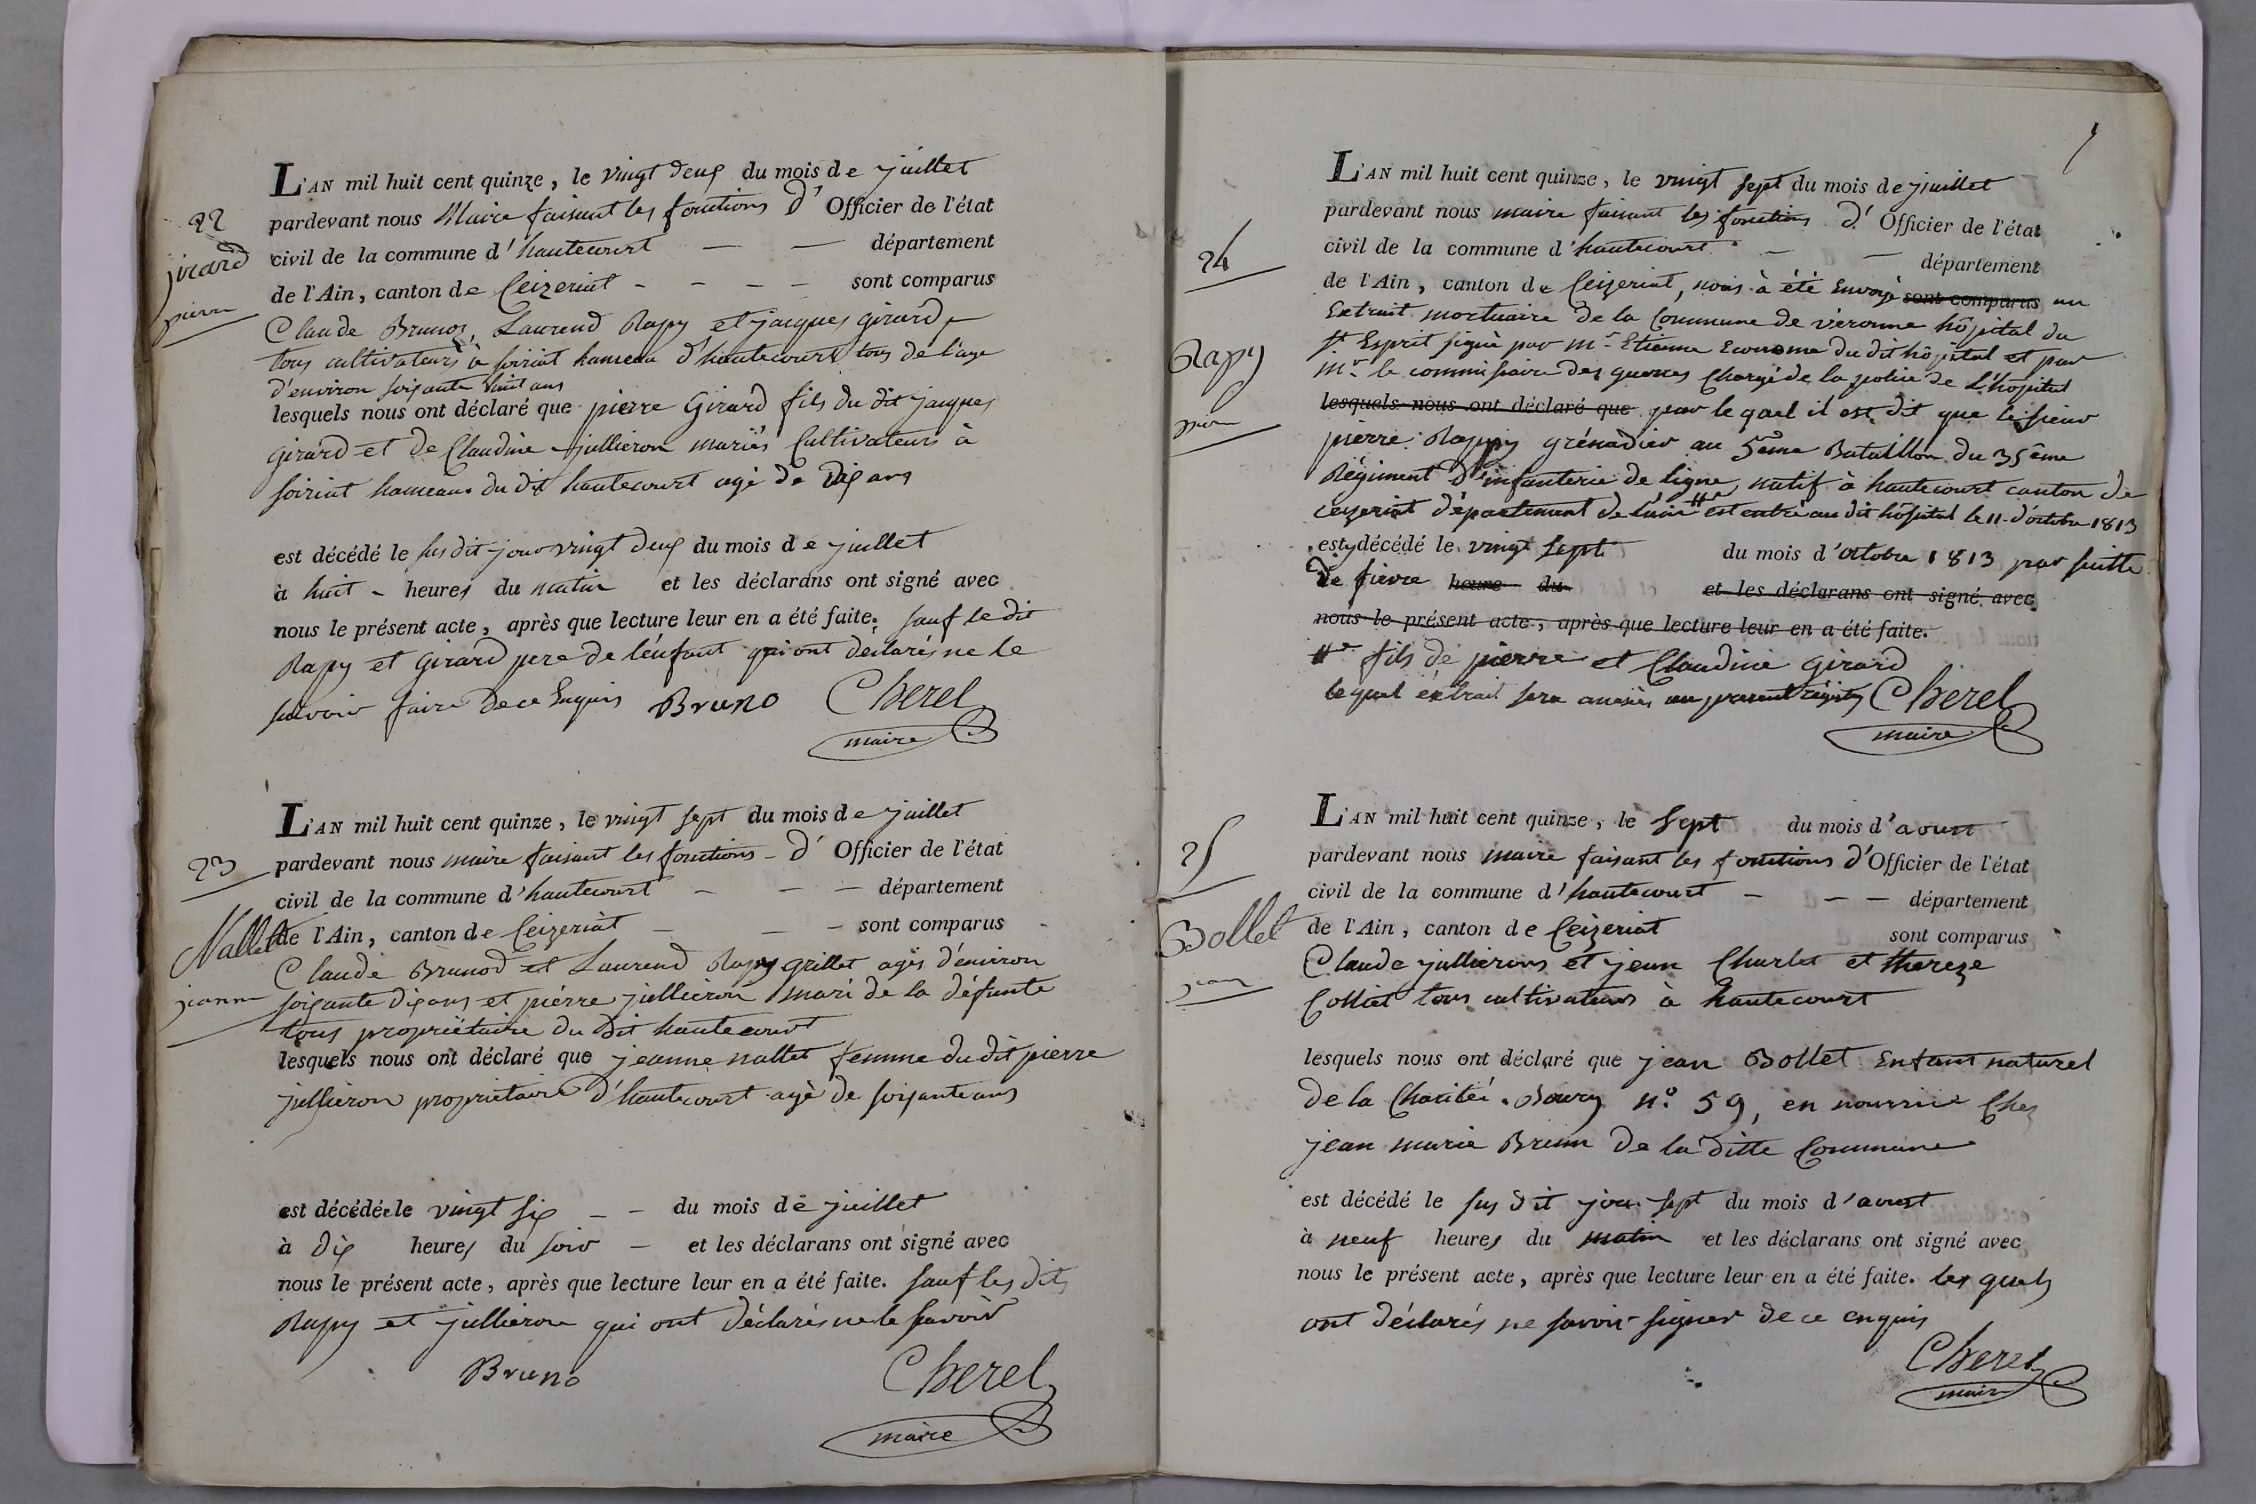 22
jirard
pierre
L'AN mil huit cent quinze, le vingt deux du mois de juillet
pardevant nous Maire faisant les fonctions d' Officier de l'état
civil de la commune d'hautecourt — — département
de l'Ain, canton de Ceizeriat - - - - sont comparus
Claude Brunod, Laurend Rapy et jacques girard
tous cultivateurs à soiriat hameau d'hautecourt tous de l'age
d'environ soixante huit ans
lesquels nous ont déclaré que pierre Girard fils du dit jacques
girard et de Claudine jullieron mariés Cultivateurs à
soiriat hameau du dit hautecourt agé de dix ans
est décédé le sus dit jour vingt deux du mois de juillet
à huit - heures du matin et les déclarans ont signé avec
nous le présent acte, après que lecture leur en a été faite. sauf le dit
Rapy et Girard pere de l'enfant qui ont déclarés ne le
savoir faire de ce Enquis Bruno Cherel
maire
23
Nallet
jeanne
L'AN mil huit cent quinze, le vingt sept du mois de juillet
pardevant nous maire faisant les fonctions - d' Officier de l'état
civil de la commune d'hautecourt - — — département
de l'Ain, canton de Ceizeriat — — - sont comparus
Claude Brunod et Laurend Rapy grillet agés d'environ
soixante dix ans et pierre jullieron mari de la défunte
tous propriétaire du dit hautecourt
lesquels nous ont déclaré que jeanne nallet femme du dit pierre
jullieron propriétaire d'hautecourt agé de soixante ans
est décédée le vingt six — - du mois de juillet
à dix heures du soir — et les déclarans ont signé avec
nous le présent acte, après que lecture leur en a été faite. sauf les dits
Rapy et jullieron qui ont déclarés ne le savoir
Bruno Cherel
maire
24
Rapy
pierre
L'AN mil huit cent quinze, le vingt sept du mois de juillet
pardevant nous maire faisant les fonctions d' Officier de l'état
civil de la commune d'hautecourt - — département
de l'Ain, canton de Ceizeriat, nous à été Envoyé sont comparus un
Extrait mortuaire de la Commune de véronne hôpital du
st Esprit signé par mr Etienne Econome du dit hôpital et par
mr le commissaire des guerres Chargé de la police de l'hôpital
lesquels nous ont déclaré que par le quel il est dit que le sieur
pierre Rappy grénadier au 5ème Bataillon du 35ême
Régiment d'infanterie de ligne natif à hautecourt canton de
ceyzeriat département de l'ain # est entré au dit hôpital le 11 d'octobre 1813
est y décédé le vingt sept du mois d'octobre 1813 par suitte
de fievre heure du et les déclarans ont signé avec
nous le présent acte, après que lecture leur en a été faite.
# fils de pierre et Claudine girard
le quel éxtrait sera anéxés au present régistre Cherel
maire
25
Bollet
jean
L'AN mil huit cent quinze, le sept du mois d'aoust
pardevant nous maire faisant les fonctions d'Officier de l'état
civil de la commune d'hautecourt — — — département
de l'Ain, canton de Ceizeriat sont comparus
Claude jullierons et jean Charlet et thereze
Colliat tous cultivateurs à hautecourt
lesquels nous ont déclaré que jean Bollet Enfant naturel
de la Charité. Bourg n° 59, en nourrice Chez
jean marie Brunn de la ditte Commune
est décédé le sus dit jour sept du mois d'aoust
à neuf heures du matin et les déclarans ont signé avec
nous le présent acte, après que lecture leur en a été faite. les quels
ont déclarés ne savoir signer de ce enquis
Cherel
maire